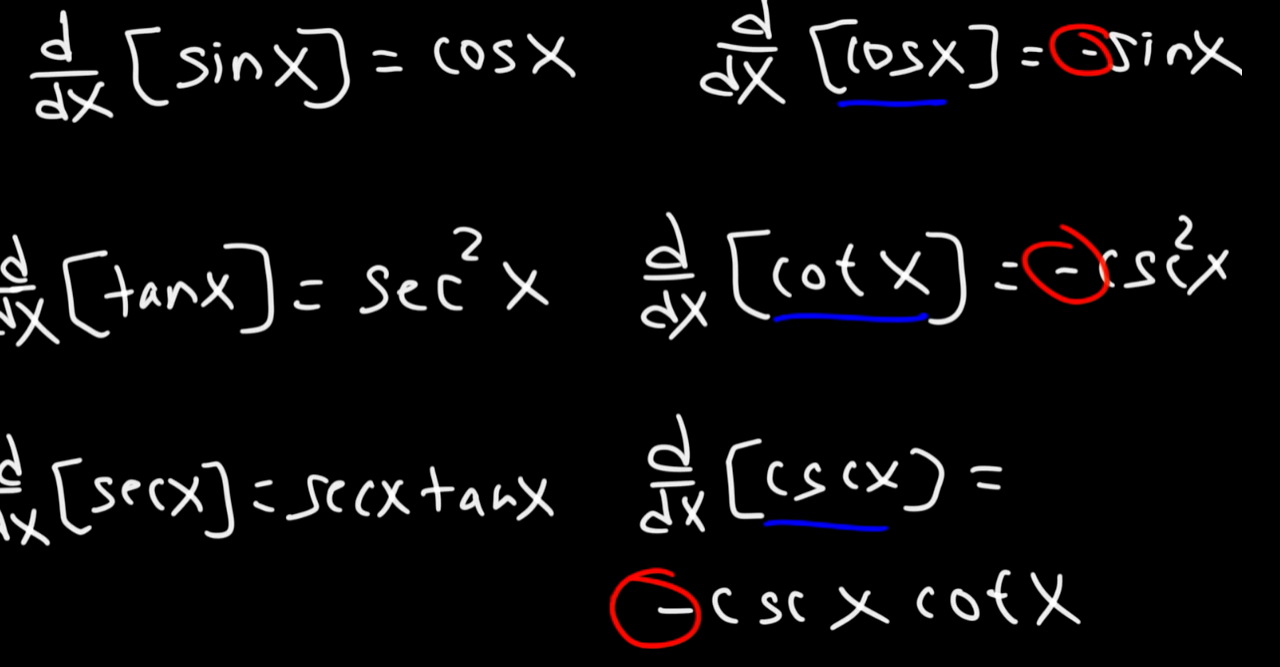 d/dx [sinx] = cosx
d/dx [cosx] = -sinx
d/dx [tanx] = sec²x
d/dx [cotx] = -csc²x
d/dx [secx] = secxtanx
d/dx [cscx) =
-cscxcotx